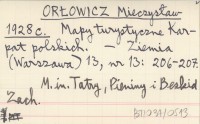 ORŁOWICZ Mieczysław
1928 c. Mapy turystyczne Kar-
pat polskich. — Ziemia
(Warszawa) 13, nr 13: 206-207.
M.in. Tatry, Pieniny i Beskid
Zach.